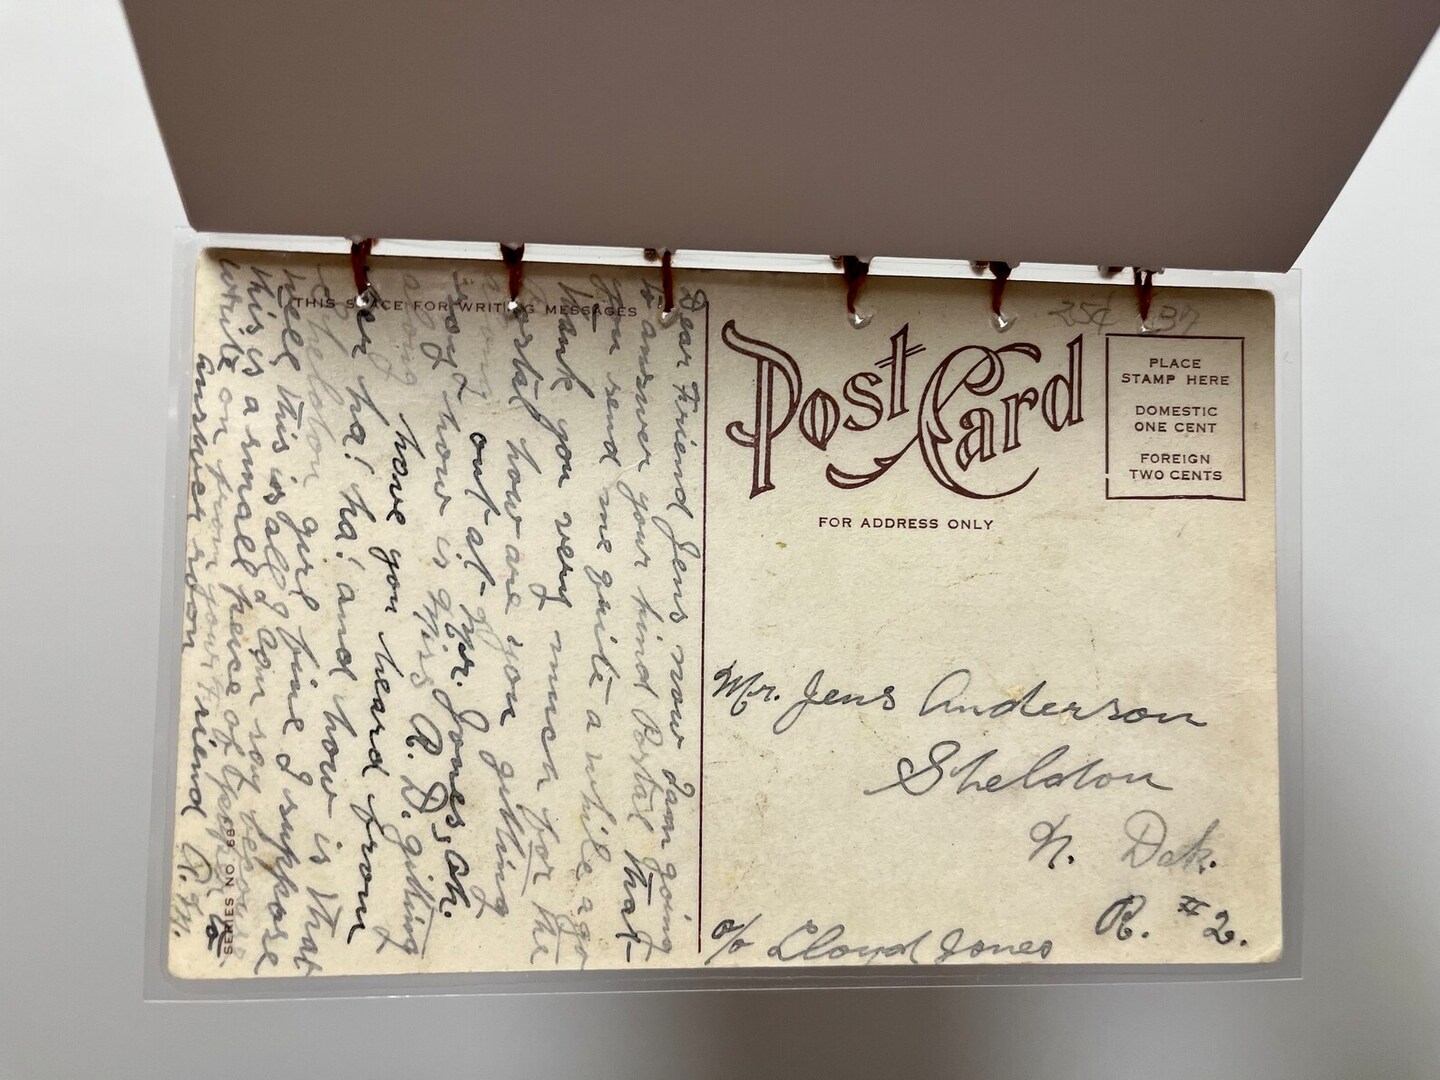 THIS SPACE FOR WRITING MESSAGES
Dear Friend Jens now I am going
to answer your kind Postal that
you send me quite a while ago
thank you very much for the
Postal how are you getting
along out at Mr. Jones, Oh.
say how is Miss A. D. getting
along have you heard from
her ha! ha! and how is that
Sheldon girl fine I suppose
Well this is all I can say because
this is a small peice of paper to
write on from your Friend
answer soon
SERIES NO. 68
Post Card
25¢
PLACE
STAMP HERE
DOMESTIC
ONE CENT
FOREIGN
TWO CENTS
FOR ADDRESS ONLY
Mr. Jens Anderson
Sheldon
N. Dak.
R. #2.
c/o Lloyd Jones